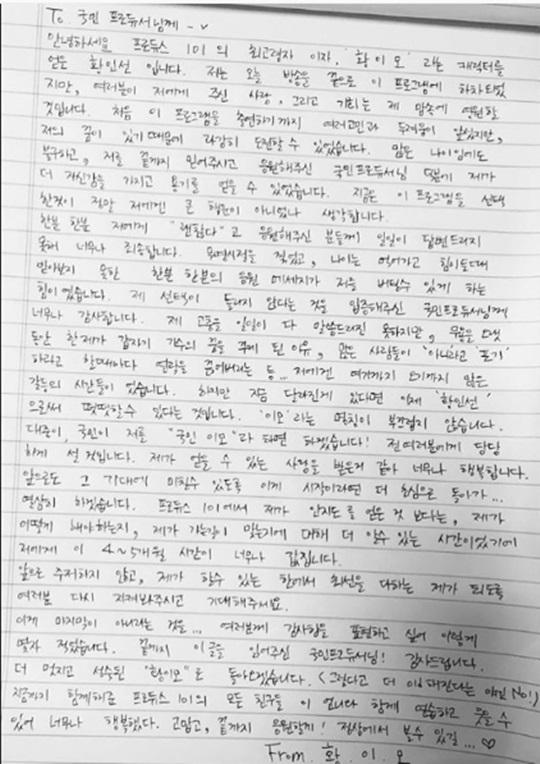 To. 국민 프로듀서님께 -✓
안녕하세요 프로듀스 101의 최고령자 이자, '황이모' 라는 캐릭터를
얻은 황인선 입니다. 저는 오늘 방송을 끝으로 이 프로그램에 하차하였
지만, 여러분이 저에게 주신 사랑, 그리고 기회는 제 맘속에 영원할
것입니다. 처음 이 프로그램을 출연하기까지 여러고민과 두려움이 앞섰지만,
저의 꿈이 있기때문에 과감히 도전할수 있었습니다. 많은 나이임에도
불구하고, 저를 끝까지 믿어주시고 응원해주신 국민프로듀서님 덕분에 제가
더 자신감을 가지고 용기를 얻을 수 있었습니다. 지금은 이 프로그램을 선택
한것이 정말 저에겐 큰 행운이 아니었나 생각합니다.
한분 한분 저에게 "괜찮다"고 응원해주신 분들께 일일이 답변드리지
못해 너무나 죄송합니다. 목소리 나이는 먹어가고 힘이들때
받아보지 못한 한분 한분의 응원 메세지가 저를 버틸수 있게 하는
힘이였습니다. 제 선택이 틀리지 않다는 것을 입증해주신 국민프로듀서님께
너무나 감사합니다. 제 고충을 일일이 다 말씀드리진 못하지만, 무용을
동안 한제가 갑자기 가수의 꿈을 꾸게 된 이유, 많은 사람들이 '아니라고' '포기'
하라고 할때마다 연락을 끊어버리는 등... 저에겐 여기까지 오기까지 많은
갈등의 시간들이 있습니다. 하지만 지금 달라진게 있다면 이제 '황인선'
으로써 떳떳할수 있다는 것입니다. '이모'라는 명칭이 부끄럽지 않습니다.
대중이, 국민이 저를 "국민 이모"라 하면 하겠습니다! 전 여러분에게 당당
하게 설 것입니다. 제가 얻을 수 있는 사랑을 받은거 같아 너무나 행복합니다.
앞으로도 그 기대에 미칠수 있도록 이게 시작이라면 더 초심으로 돌아가...
열심히 하겠습니다. 프로듀스 101에서 제가 인지도를 얻은 것 보다는, 제가
어떻게 해야하는지, 제가 가는길이 맞는지에 대해 더 알수 있는 시간이었기에
저에게 이 4~5개월 시간이 너무나 값집니다.
앞으로 주저하지 않고, 제가 할수 있는 한에서 최선을 다하는 제가 되도록
여러분 다시 지켜봐주시고 기대해주세요.
이게 마지막이 아니라는 것을... 여러분께 감사함을 표현하고 싶어 이렇게
몇자 적었습니다. 끝까지 이글을 읽어주신 국민프로듀서님! 감사드립니다.
더 멋지고 성숙된 "황이모"로 돌아오겠습니다. (그렇다고 더 한다는 No!)
지금까지 함께해준 프로듀스 101의 모든 친구들 이 언니가 함께 연습하고 웃을 수
있어 너무나 행복했다. 고맙고, 끝까지 응원할게! 정상에서 볼수 있길... ♡
From. 황. 이. 모